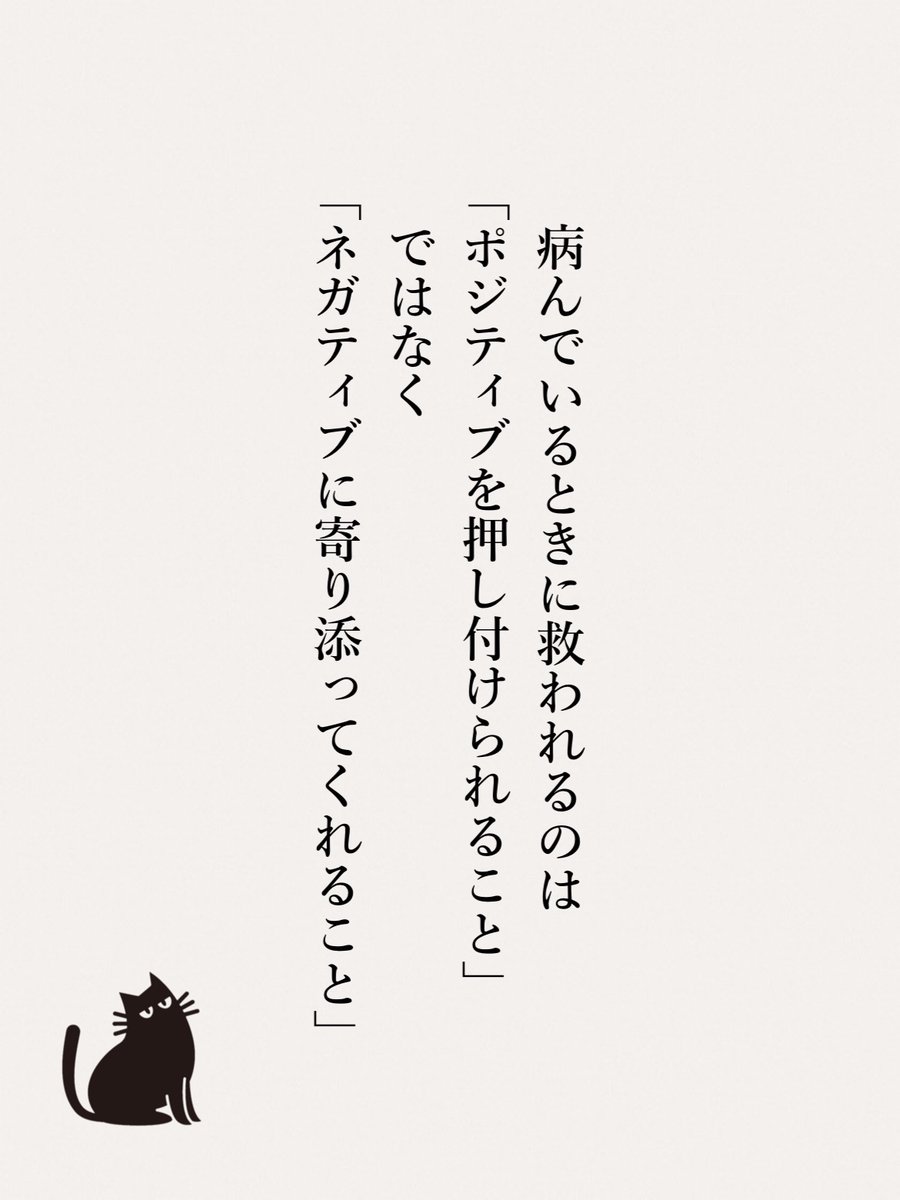 病んでいるときに救われるのは
「ポジティブを押し付けられること」
ではなく
「ネガティブに寄り添ってくれること」